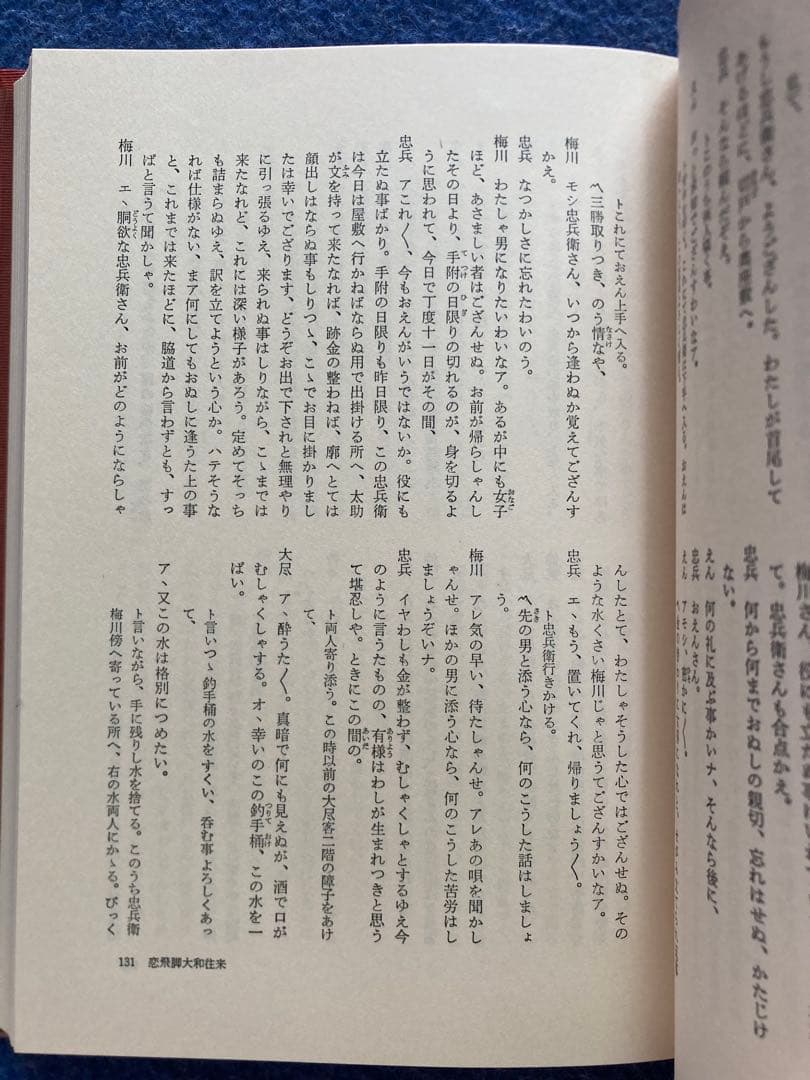 もうし忠兵衛さん、ようござんした。わたしが首尾して
梅川さん、役にも立たぬ事にも、
て。忠兵衛さんも合点かえ。
忠兵 何から何までおぬしの親切、忘れはせぬ、かたじけ
ない。
えん 何の礼に及ぶ事かいナ、そんなら後に、
忠兵 おえんさん。
ト これにておえん上手へ入る。
〽三勝取りつき、のう情なや、
梅川 モシ忠兵衛さん、いつから逢わぬか覚えてござんす
かえ。
忠兵 なつかしさに忘れたわいのう。
梅川 わたしゃ男になりたいわいなア。あるが中にも女子
ほど、あさましい者はござんせぬ。お前が帰らしゃんし
たその日より、手附の日限りの切れるのが、身を切るよ
うに思われて、今日で丁度十一日がその間、
忠兵 アこれ〳〵、今もおえんがいうではないか。役にも
立たぬ事ばかり。手附の日限りも昨日限り、この忠兵衛
は今日は屋敷へ行かねばならぬ用で出掛ける所へ、太助
が文を持って来たなれば、跡金の整わねば、廓へとては
顔出しはならぬ事もしりつゝ、こゝでお目に掛かりまし
たは幸いでござります、どうぞお出で下されと無理やり
に引っ張るゆえ、来られぬ事はしりながら、こゝまでは
来たなれど、これには深い様子があろう。定めてそっち
も詰まらぬゆえ、訳を立てようという心か。ハテそうな
れば仕様がない、まア何にしてもおぬしに逢うた上の事
と、これまでは来たほどに、脇道から言わずとも、すっ
ぱと言うて聞かしゃ。
梅川 エヽ胴欲な忠兵衛さん、お前がどのようにならしゃ
んしたとて、わたしゃそうした心ではござんせぬ。その
ような水くさい梅川じゃと思うてござんすかいなア。
忠兵 エヽもう、置いてくれ、帰りましょう〳〵。
ト忠兵衛行きかける。
〽先の男と添う心なら、何のこうした話はしましょ
う。
梅川 アレ気の早い、待たしゃんせ。アレあの唄を聞かし
ゃんせ。ほかの男に添う心なら、何のこうした苦労はし
ましょうぞいナ。
忠兵 イヤわしも金が整わず、むしゃくしゃとするゆえ今
のように言うたものの、有様はわしが生まれつきと思う
て堪忍しや。ときにこの間の。
ト両人寄り添う。この時以前の大尽客二階の障子をあけ
て、
大尽 アヽ酔うた〳〵。真暗で何にも見えぬが、酒で口が
むしゃくしゃする。オヽ幸いのこの釣手桶、この水を一
ぱい。
ト言いつゝ釣手桶の水をすくい、呑む事よろしくあっ
て、
アヽ又この水は格別につめたい。
ト言いながら、手に残りし水を捨てる。このうち忠兵衛
梅川傍へ寄っている所へ、右の水両人にかゝる。びっく
131 恋飛脚大和往来